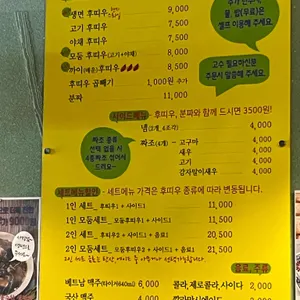 생면 후띠우 9,000
고기 후띠우 7,500
야채 후띠우 7,500
모듬 후띠우(고기+야채) 8,500
까이(매운) 8,500
후띠우 곱빼기 1,000원 추가
분짜 11,000
물, 밥(무료)은
셀프 이용해 주세요.
고수 필요하신분
주문시 말씀해 주세요.
사이드메뉴 - 후띠우, 분짜와 함께 드시면 3500원!
넴(2개, 4조각) 4,000
짜조(4개) - 고구마 4,000
새우 4,000
고기 4,000
감자말이새우 4,000
짜조 종류
선택 없을 시
4종짜조 섞어서
드려요~
세트메뉴할인 - 세트메뉴 가격은 후띠우 종류에 따라 변동됩니다.
1인 세트_ 후띠우1 + 사이드1 11,000
1인 모듬세트_ 모듬후띠우1 + 사이드1 11,500
2인 세트_ 후띠우2 + 사이드1 21,000
2인 모듬세트_ 모듬후띠우2 + 사이드1 21,500
음료, 주류
베트남 맥주(타이거640ml) 6,000
콜라, 제로콜라, 사이다 2,000
국산 맥주